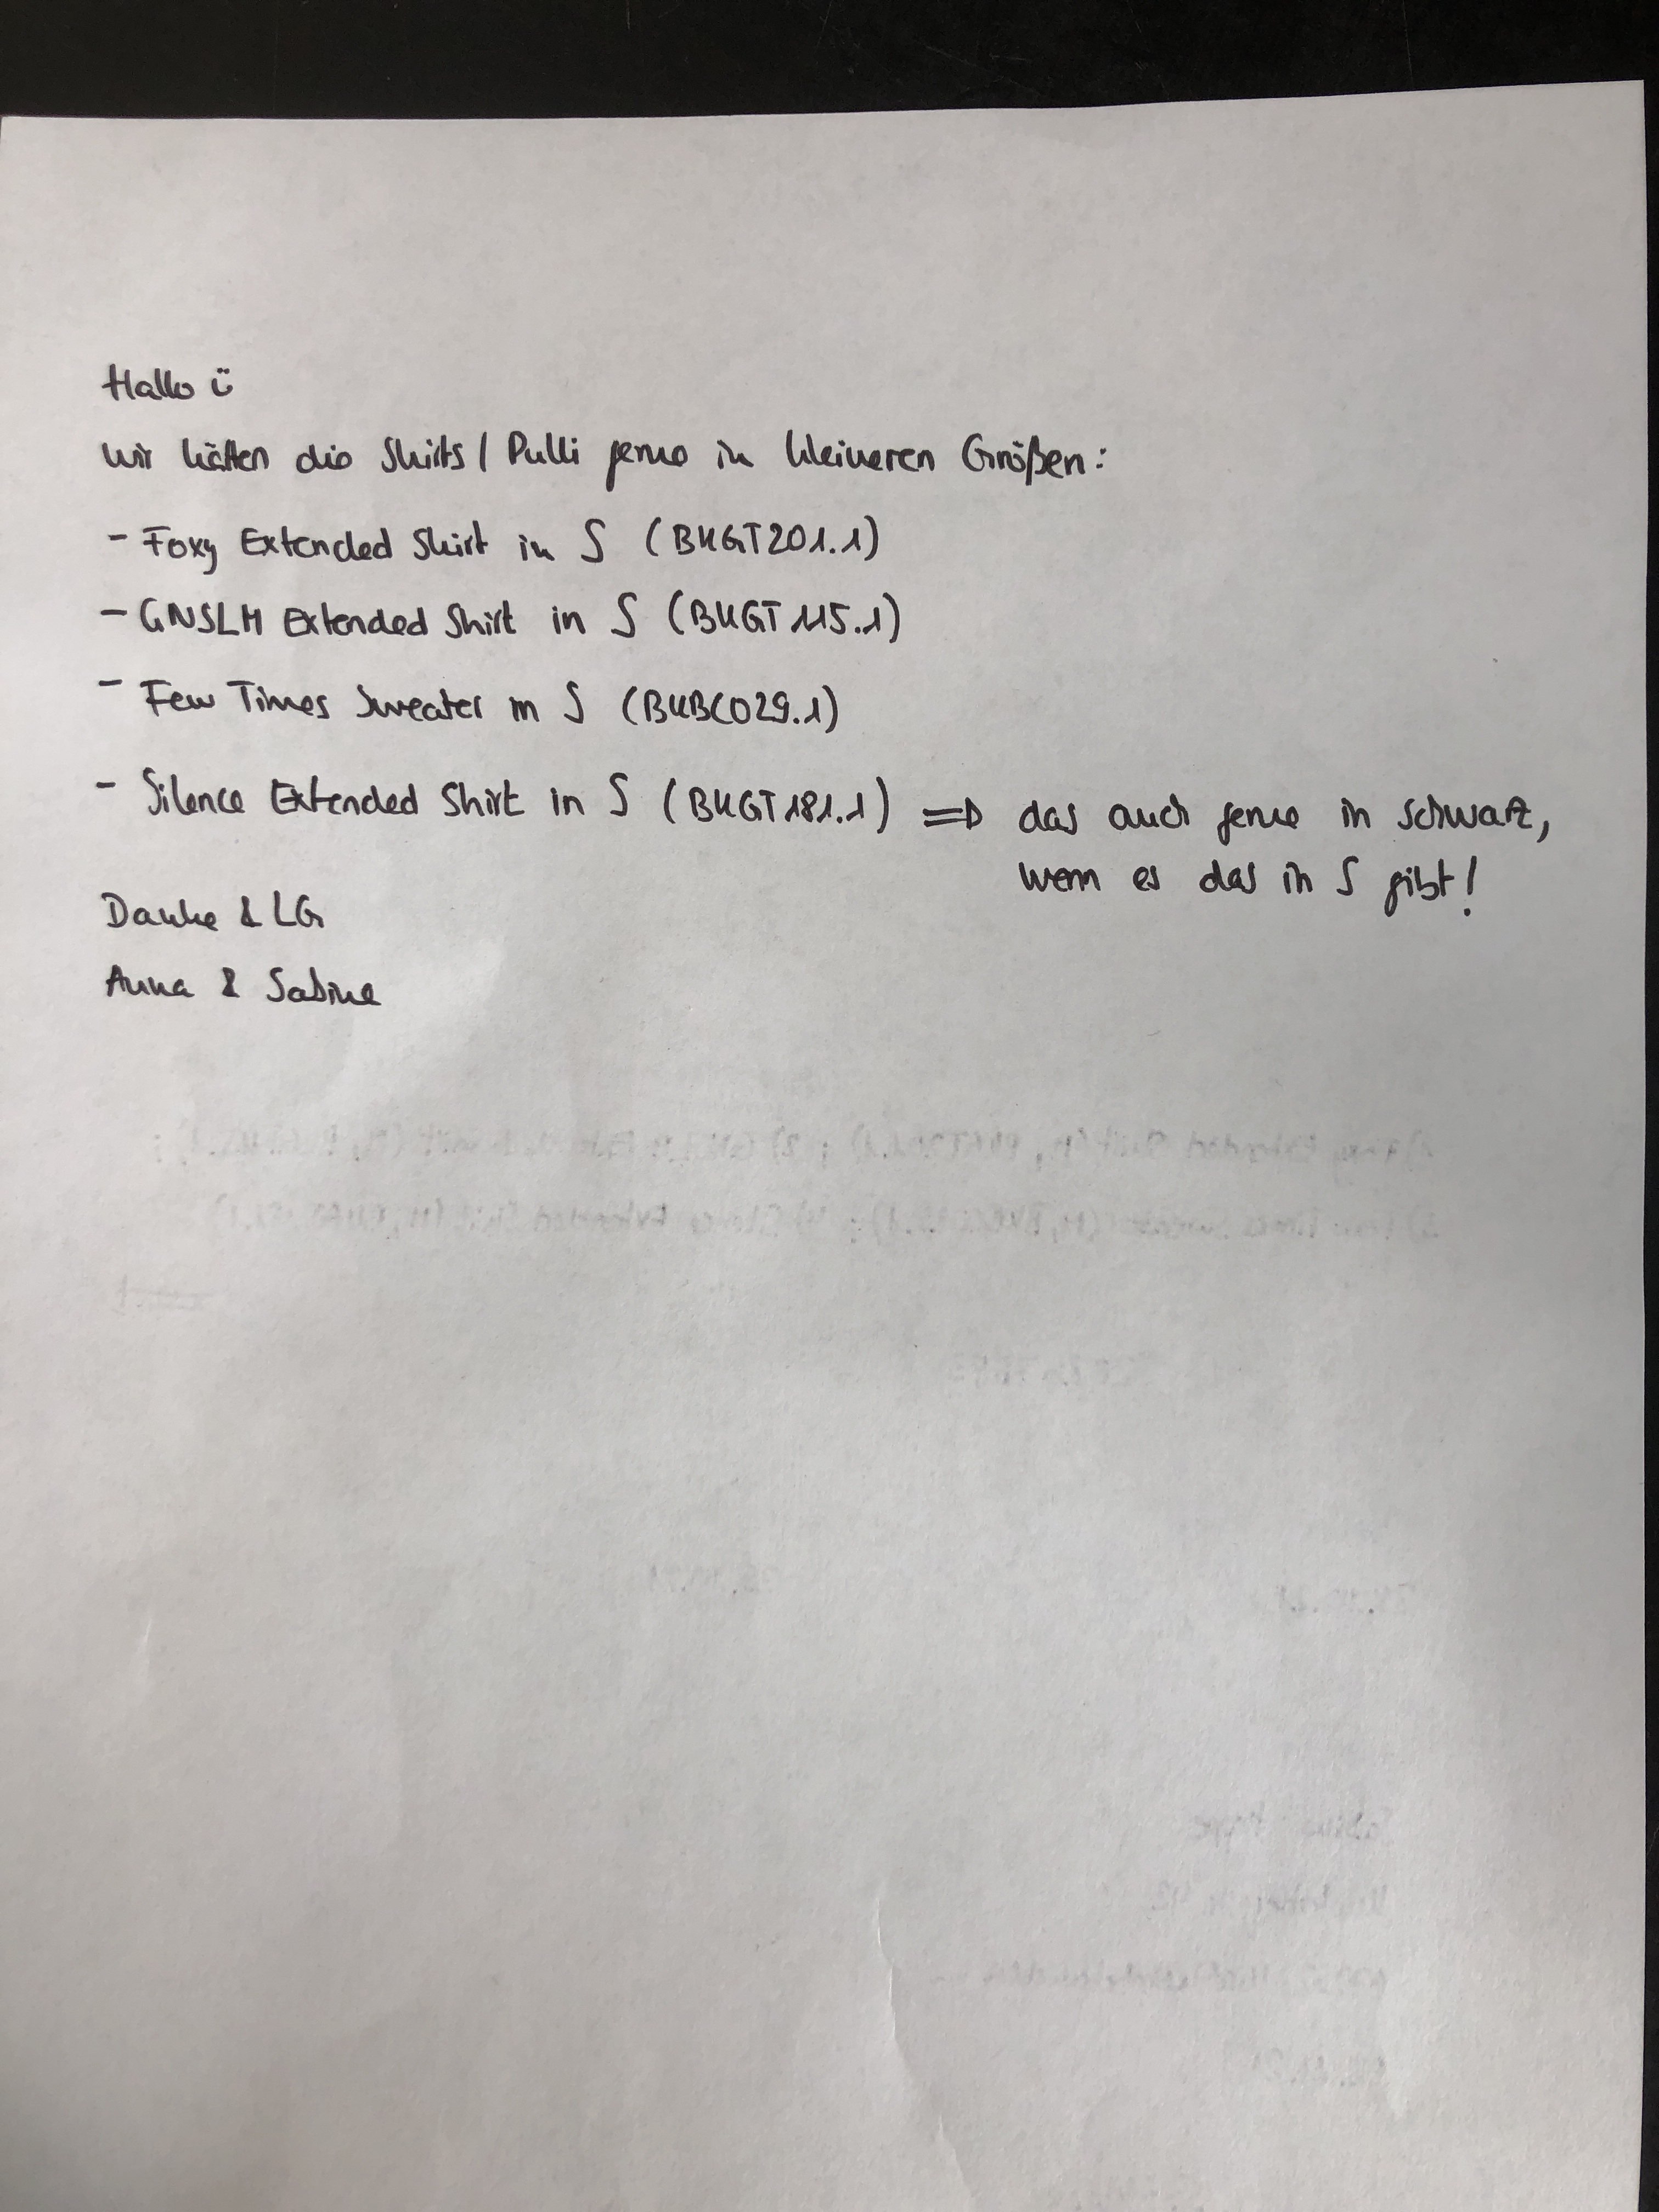 Hallo ü
wir hätten die Shirts / Pulli gerne in kleineren Größen:
- Foxy Extended Shirt in S (BKGT201.1)
- GNSLM Extended Shirt in S (BKGT115.1)
- Few Times Sweater in S (BKBC029.1)
- Silence Extended Shirt in S (BKGT181.1) ⇒ das auch gerne in schwarz,
wenn es das in S gibt!
Danke & LG
Anna & Sabine